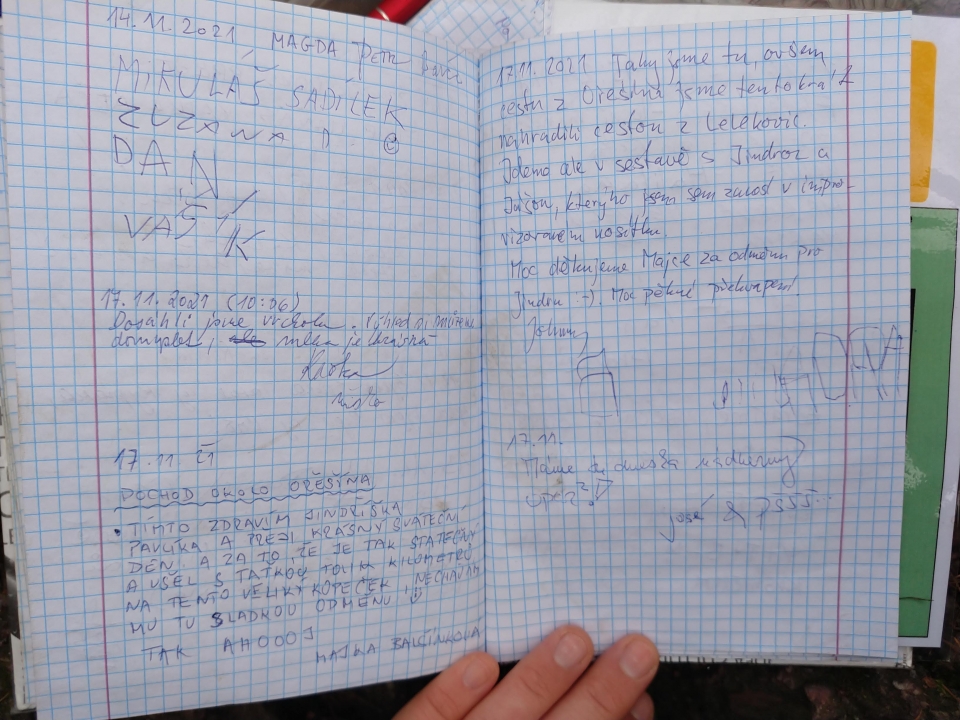 14.11.2021, MAGDA Petr
MIKULÁŠ SADÍLEK
ZUZANA D. ☺
DAN
VAŠÍK
17.11.2021 (10:06)
Dosáhli jsme vrcholu. Výhled si můžeme
domyslet, mlha je krásná
17.11. 21
DOCHOD OKOLO OŘEŠÍNA
• TÍMTO ZDRAVÍM JINDŘÍŠKA
PAVLÍKA A PŘEJI KRÁSNÝ SVÁTEČNÍ
DEN, A ZA TO ŽE JE TAK STATEČNÝ
A UŠEL S TAŤKOU TOLIK KILOMETRŮ
NA TENTO VELIKÝ KOPEČEK, NECHÁVÁM
MU TU SLADKOU ODMĚNU :)
TAK AHOOOJ
MAJKA
17.11.2021 Taky jsme tu, ovšem
cestu z Ořešína jsme tentokrát
nahradili cestou z Lelekovic.
Jdeme ale v sestavě s Jindrou a
kterýho jsem sem zanosl v impro-
vizovaném nosítku.
Moc děkujeme Majce za odměnu pro
Jindru :-). Moc pěkné překvapení
Johnny
17.11.
Máme tu dneska nádherný
José & Pššš...